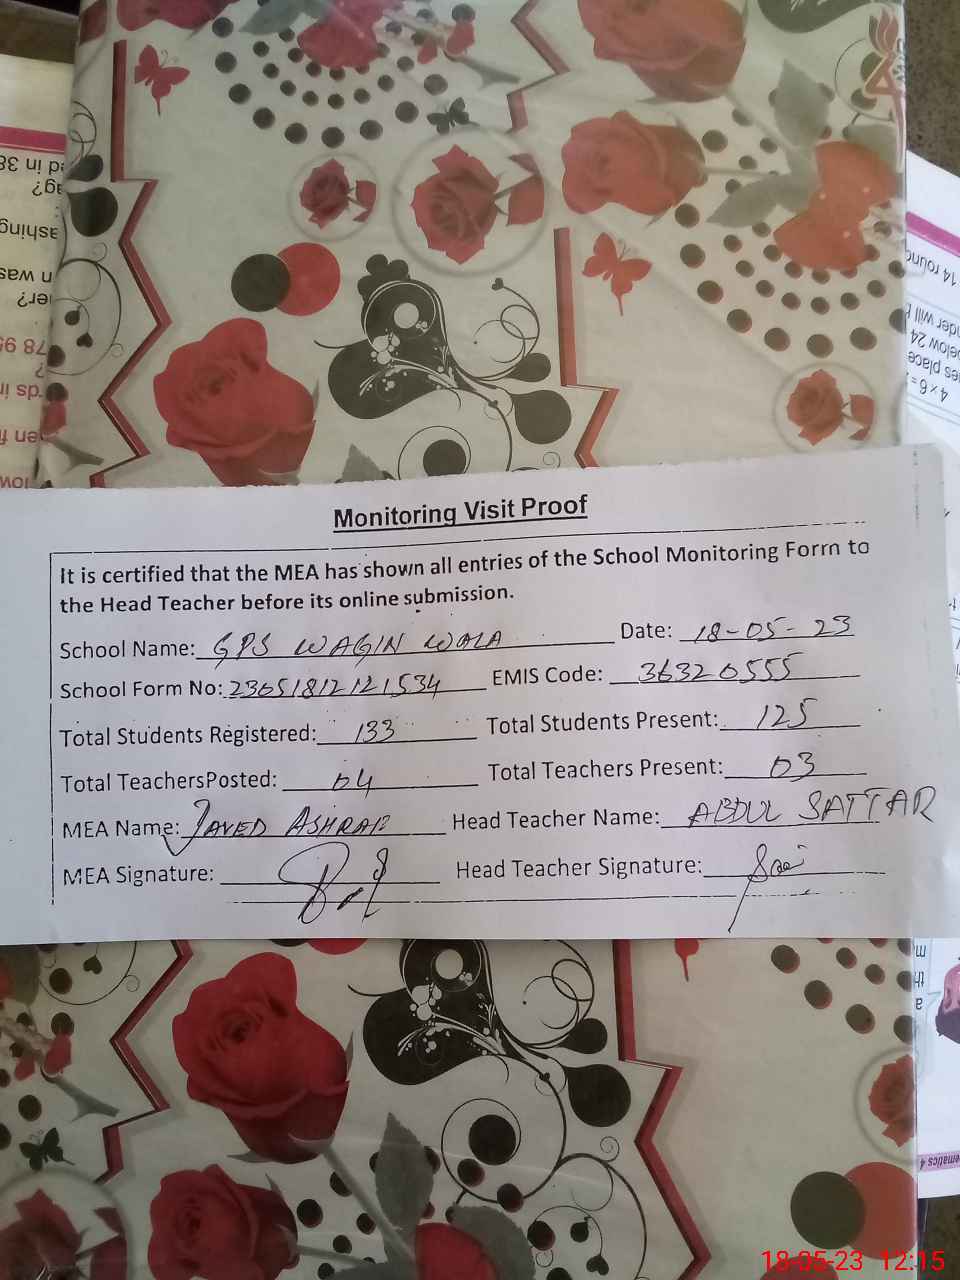 Monitoring Visit Proof
It is certified that the MEA has shown all entries of the School Monitoring Form to
the Head Teacher before its online submission.
School Name: GPS WAGIN WALA Date: 18-05-23
School Form No: 23051812121534 EMIS Code: 36320555
Total Students Registered: 133 Total Students Present: 125
Total TeachersPosted: 04 Total Teachers Present: 03
MEA Name: JAVED ASHRAF Head Teacher Name: ABDUL SATTAR
MEA Signature: Head Teacher Signature:
18-05-23 12:15